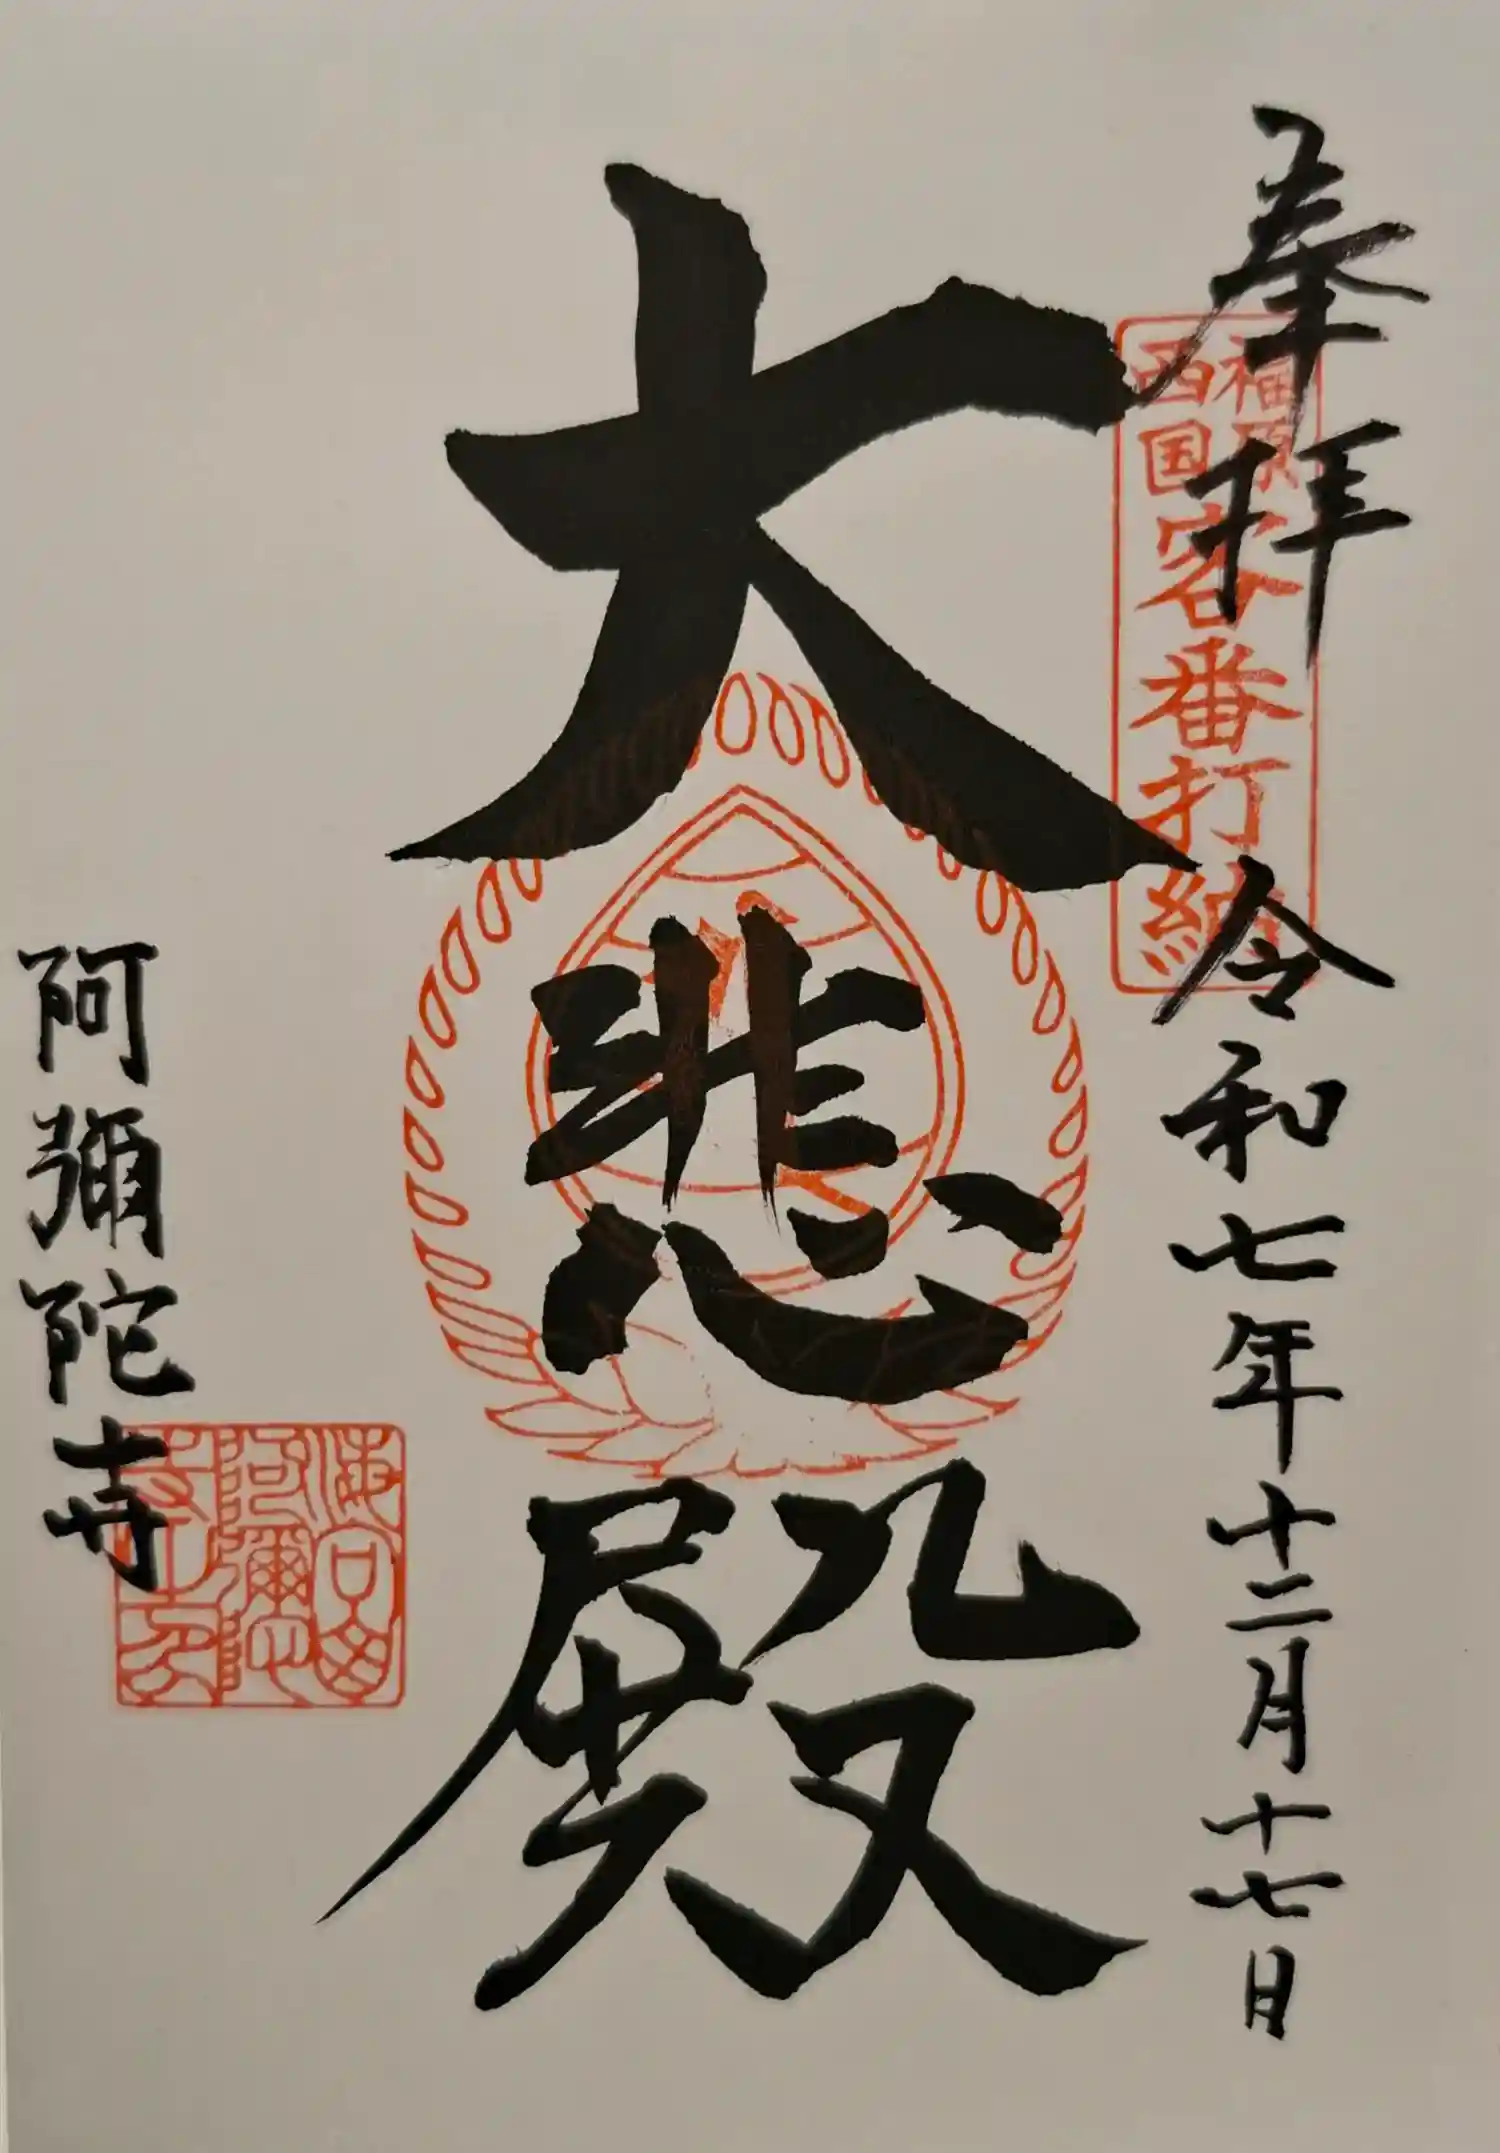 奉拝
令和七年十二月十七日
福原
西国
客番打納
大悲殿
阿彌陀寺